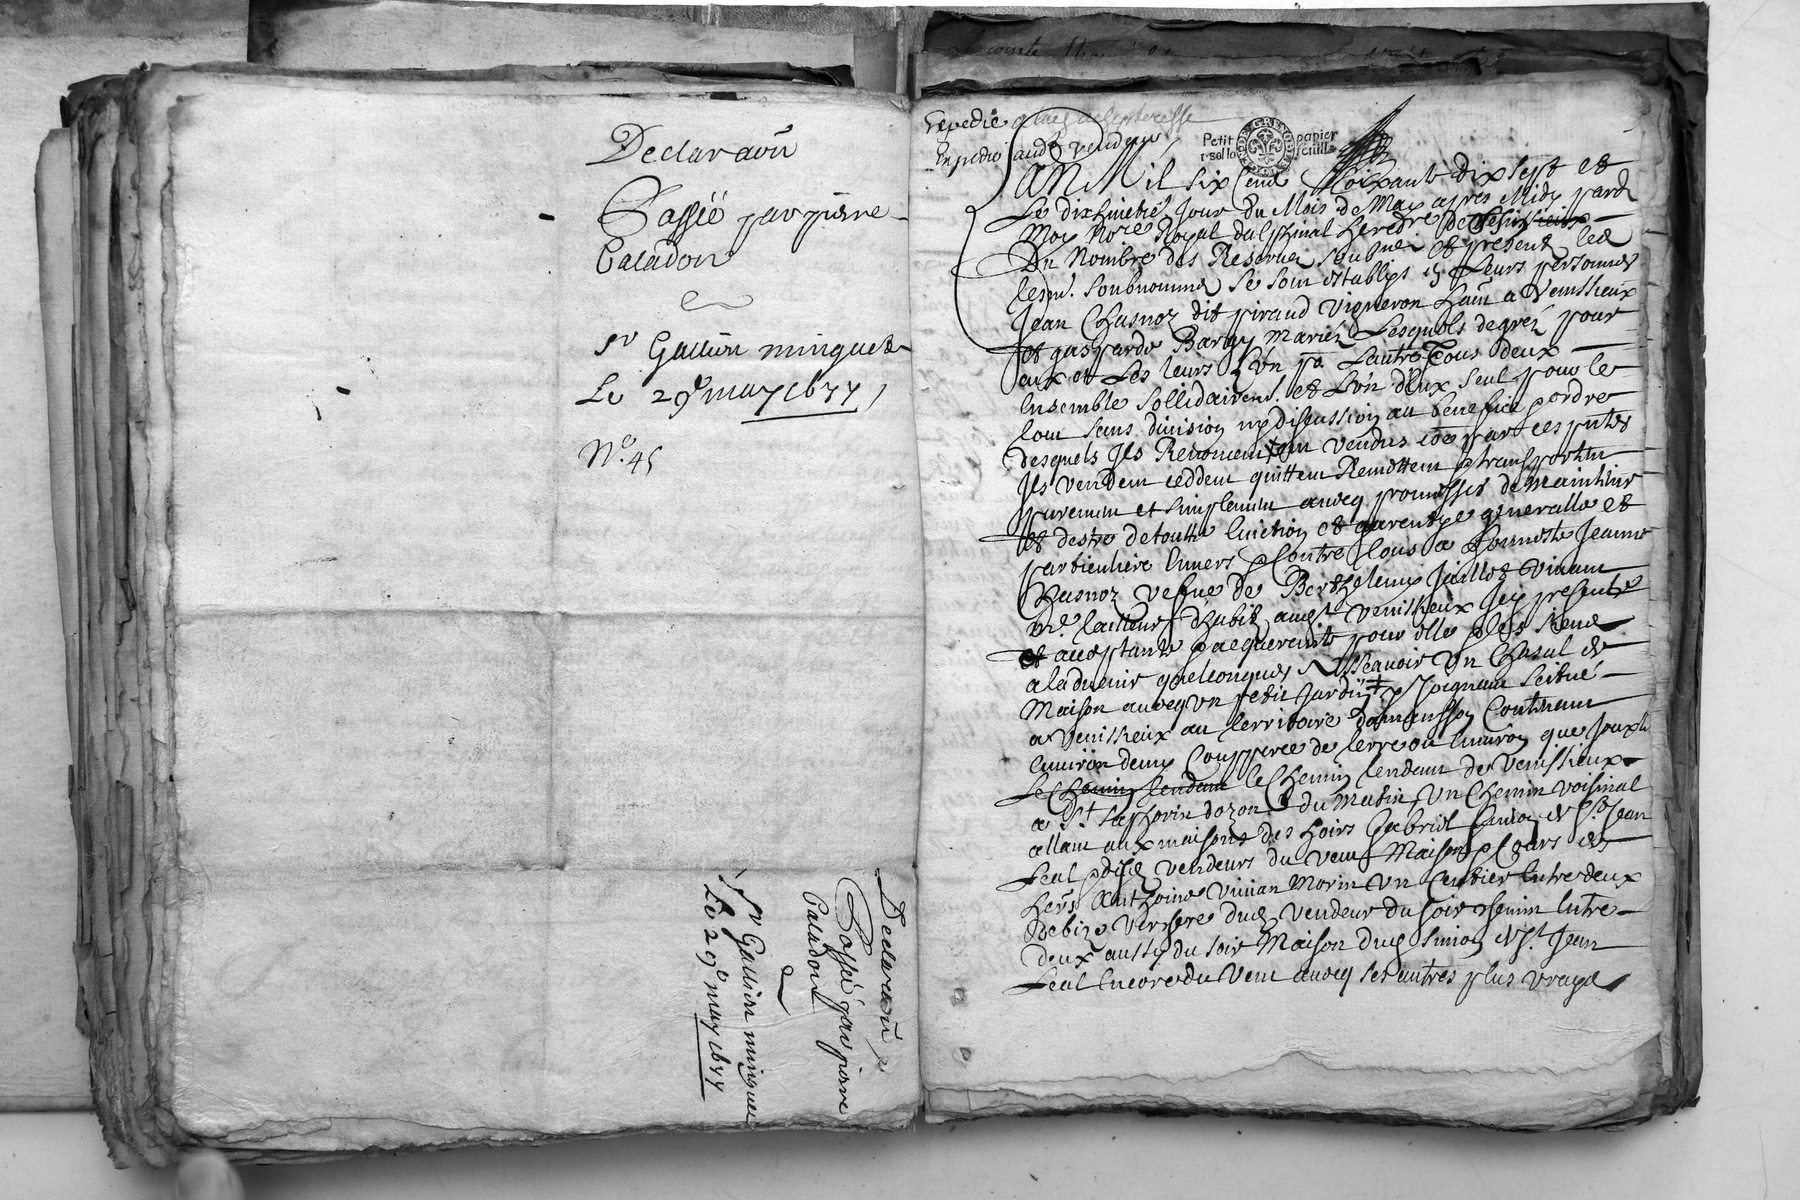 Declaraoñ
Passéé par pierre
Caladon
Sr Gallien minguet
Le 29e may 1677
No. 45
Declaraoñ
Passéé par pierre
Caladon
Sr Gallien minguet
Le 29e may 1677
Expedie a lad acheteresse
Expedie aud vendeur
Petit papier
r sol la feuille
DE GRENOBLE
L'AN Mil six Cent Soixante dix sept et
Le dixhuictie Jour du Mois de May apres Midy pard
Moy Nore Royal dalphinal heredre de
Du Nombre des Reserves soubne et present les
tesm. soubnommes se sont establys en Leurs personnes
Jean Chasnoz dit piraud Vigneron habit a Venissieux
et gasparde Bargy Mariez Lesquels de grez pour
eux et Les leurs L'un pr Lautre Tous deux
Ensemble sollidairemt. et L'un d'Eux seul pour le
tout sans division ny discussion au benefice & ordre
desquels Ils Renoncent ont vendus com par ces pntes
Ils vendent ceddent quittent Remettent & transportent
purement et simplement avecq promesses de Maintenir
et destre de toutte Eviction et garentye generalle et
particuliere Envers & Contre Tous a honneste Jeanne
Chasnoz vefve de Berthelemy Jaillet vivant
Mr. tailleur d'habit audt Venissieux Icy presente
et aceptante & acquerante pour elle & les siens
a ladvenir quelconques Assçavoir Un Chasal de
Maison avecq Un petit Jardin Joignant scitué
a Venissieux au territoire Contenant
Environ demy Coupperee de terre ou Environ que Jouxte
Le Chemin tendant le Chemin tendant de Venissieux
a St saphorin dozon du Matin, Un Chemin voisinal
allant aux maisons des hoirs Gabriel Simon & Sr. Jean
Leal & desd vendeurs du vent Maison & Cours des
hers Anthoine Vivian Morin Un Sentier Entre deux
verchere dud Vendeur du soir chemin Entre
deux aussy du soir Maison dud Simon & Sr. Jean
Leal Encore du Vent avecq ses autres plus vrayes